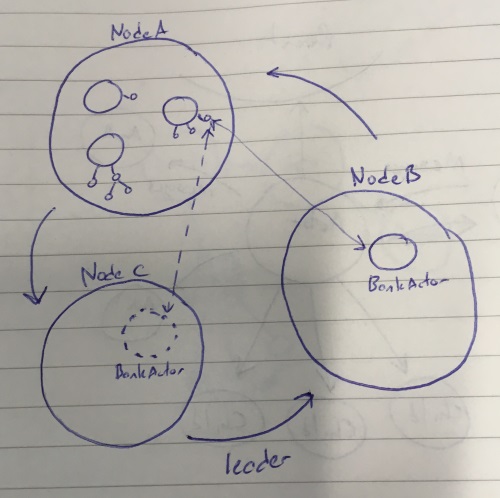 Node A
Node B
BankActor
Node C
BankActor
leader